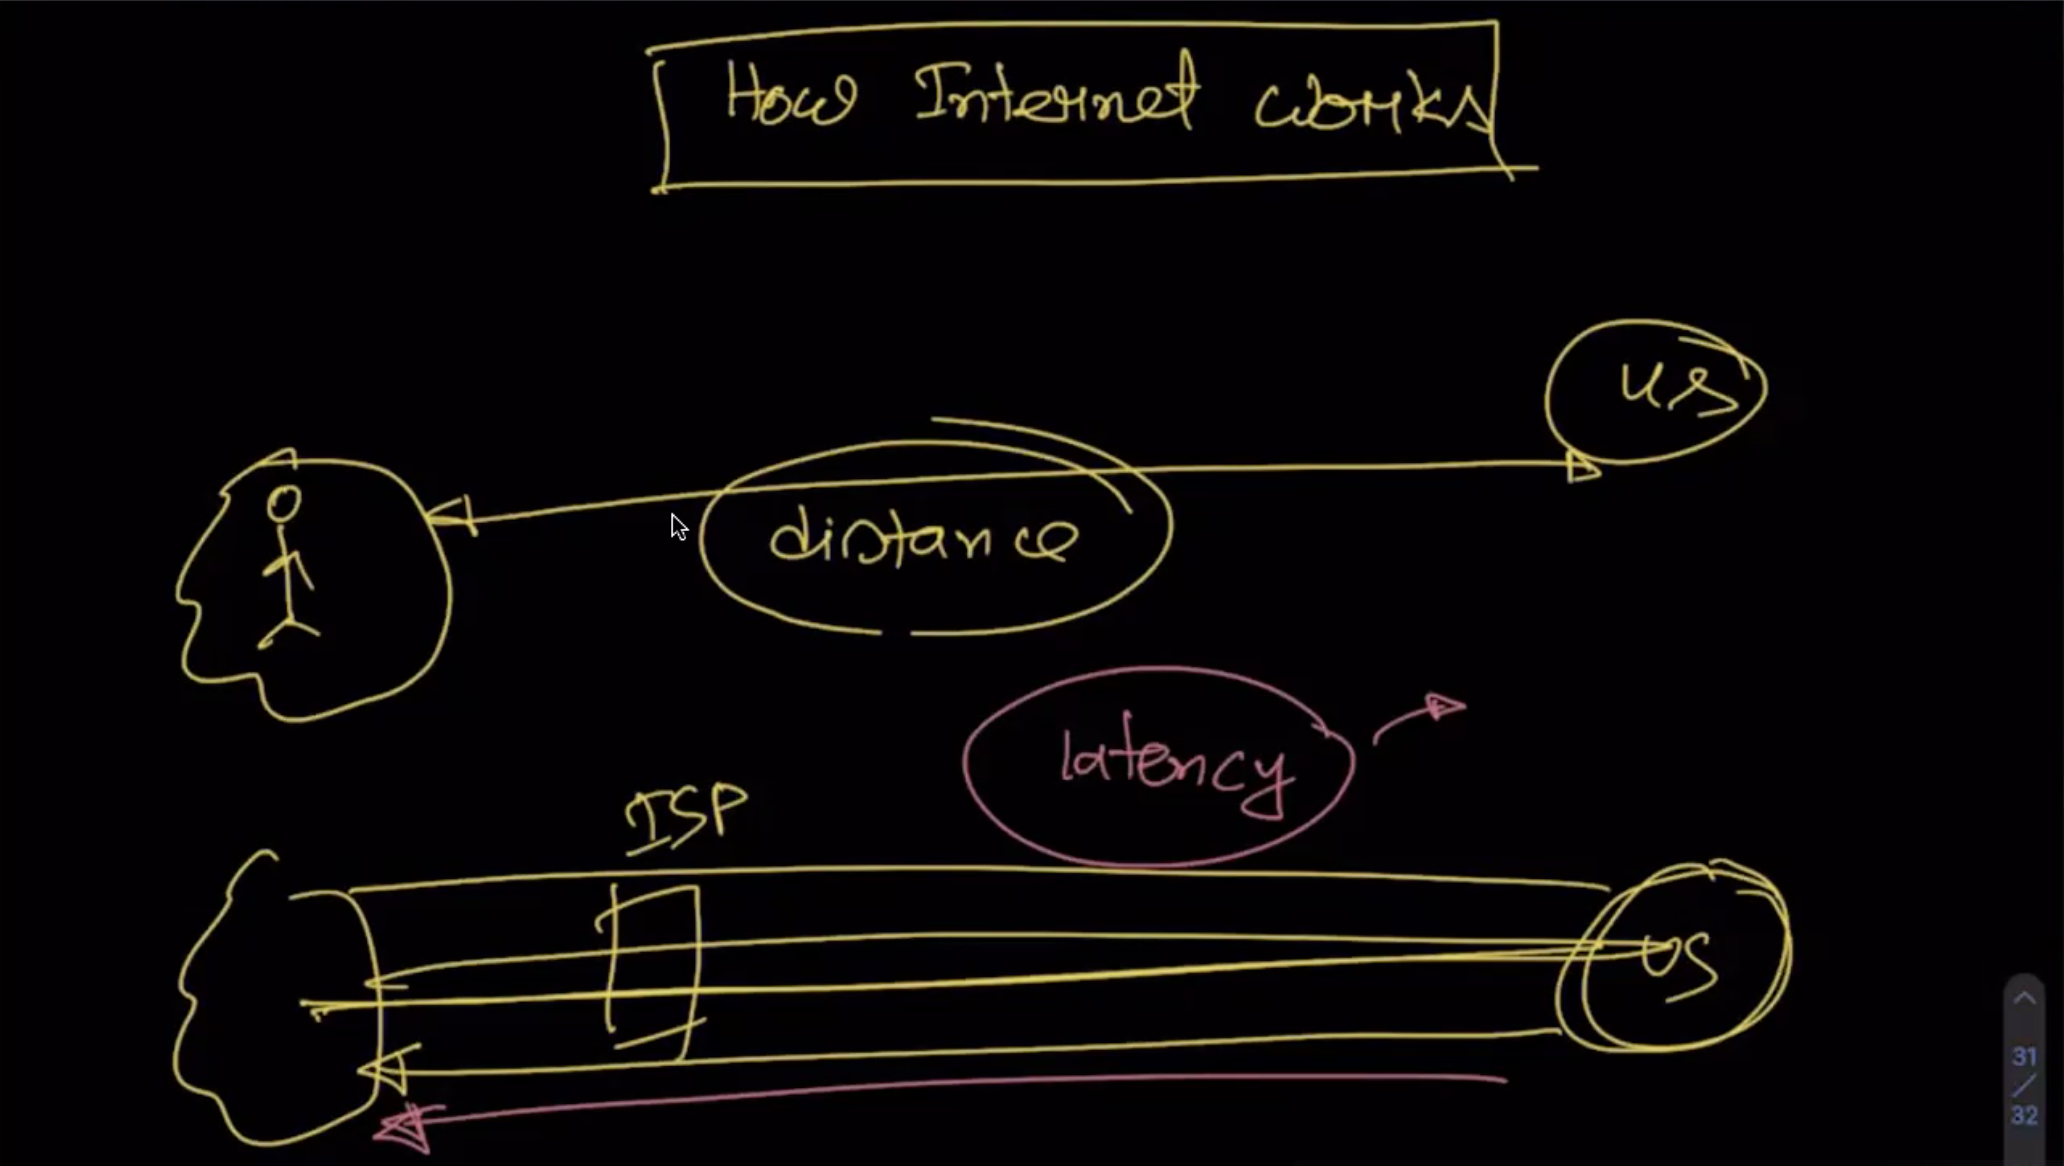 How Internet works
us
distance
latency
ISP
US
31
/
32